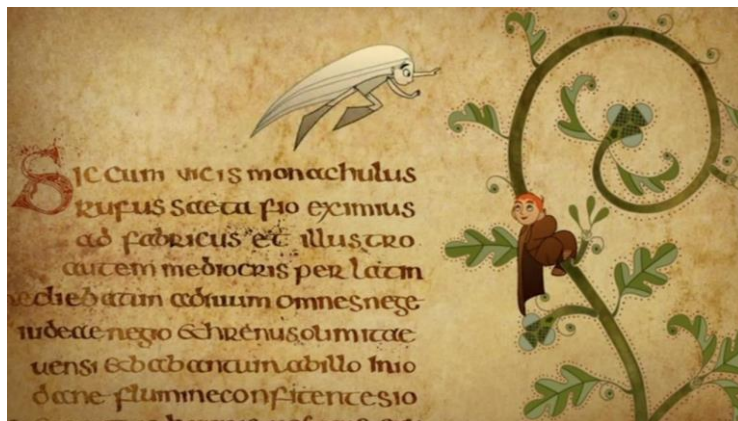 Sic cum vicis monachulus
rufus saeta fio eximius
ad fabricus et illustro
autem mediocris per latin
ediebatun adnuum omnesnege
iudeaenegio &hrenusolimitae
uensi &babantuinabillo inio
dane flumineconfitentesio